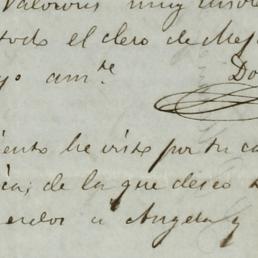 Valorous muy
todo el clero de Mej
yo amte Do
ento he visto por tu ca
ica; de la que deseo
erdos a Angela y